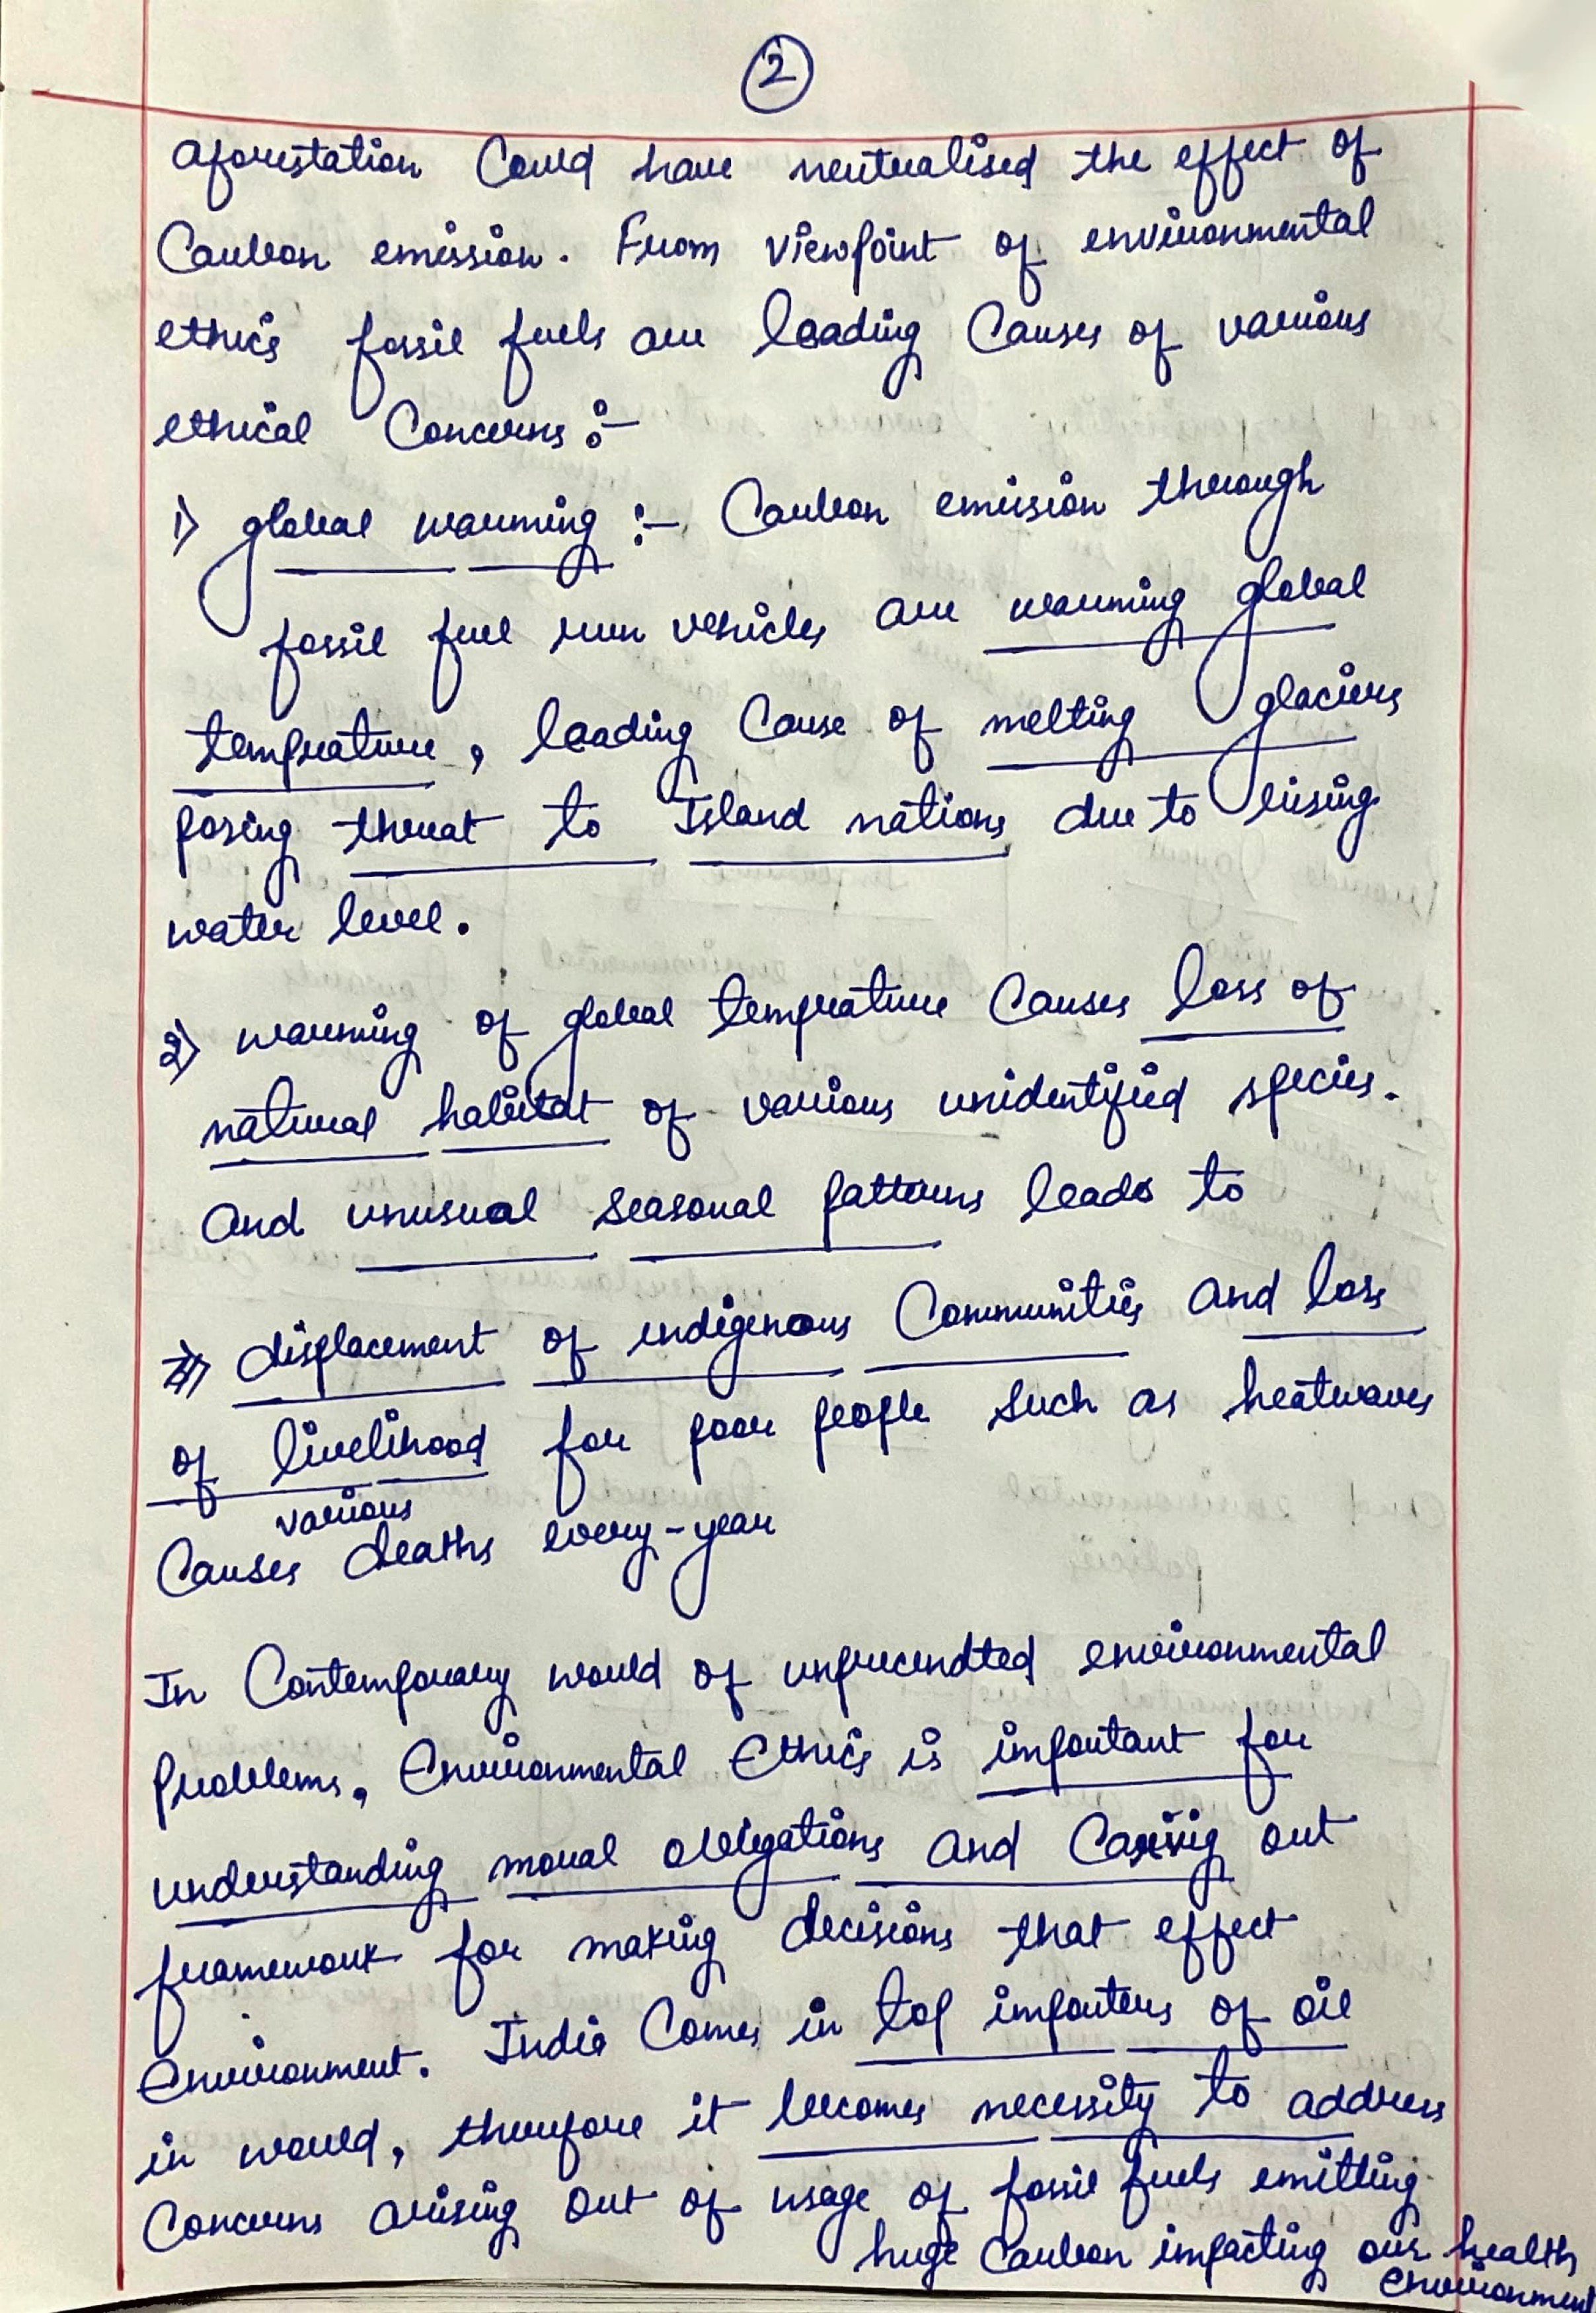 2
aforestation Could have neutralised the effect of
Carbon emission. From viewpoint of environmental
ethics fossil fuels are leading Causes of various
ethical Concerns :-
1) global warming :- Carbon emission through
fossil fuel run vehicles are warming global
temprature, leading Cause of melting glaciers
posing threat to Island nations due to rising
water level.
2) warming of global temprature Causes loss of
natural habitat of various unidentified species.
and unusual seasonal patterns leads to
3) displacement of indigenous Communities and loss
of livelihood for poor people such as heatwaves
various
Causes deaths every-year
In Contemporary world of unprecendted environmental
problems, Environmental Ethics is important for
understanding moral obligations and out
framework for making decisions that effect
Environment. India Comes in top importers of oil
in world, therefore it becomes necessity to address
Concerns arising out of usage of fossil fuels emitting
huge Carbon impacting our health
environment